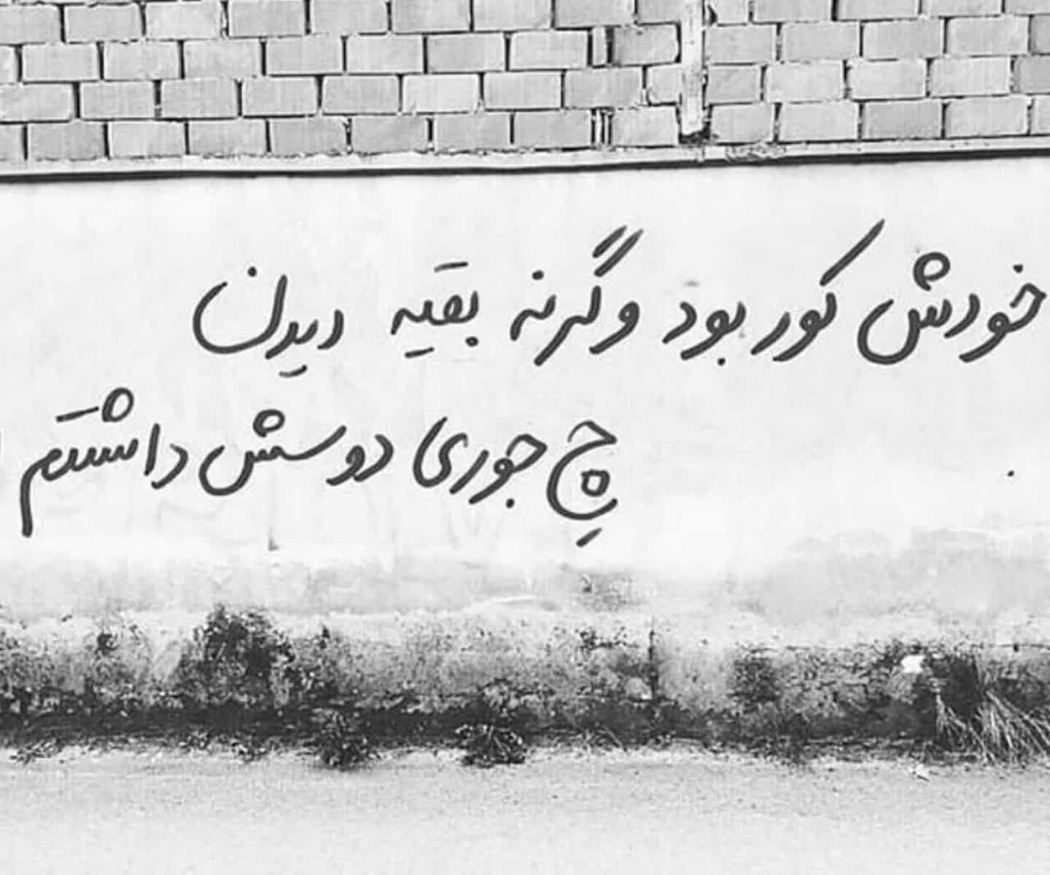 خودش کور بود وگرنه بقیه دیدن
چ جوری دوسش داشتم